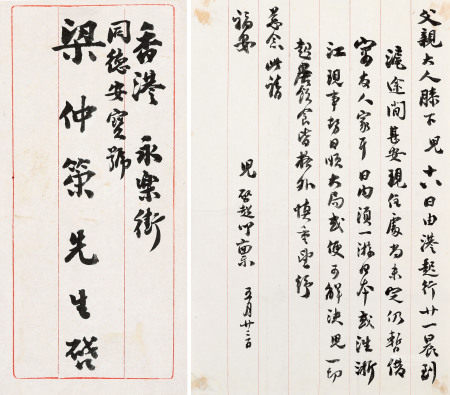 父親大人膝下兒十八日由港起行廿一晨到
滬途間甚安現住處尚未定仍暫借
寓友人家耳日內須一游日本或往浙
江現事勢日順大局或便可解決兒一切
起居飲食皆格外慎重望紓
慈念此請
福安
兒 啓超叩稟 五月廿二日
香港 永樂街
同德安寶號
梁仲策先生啓